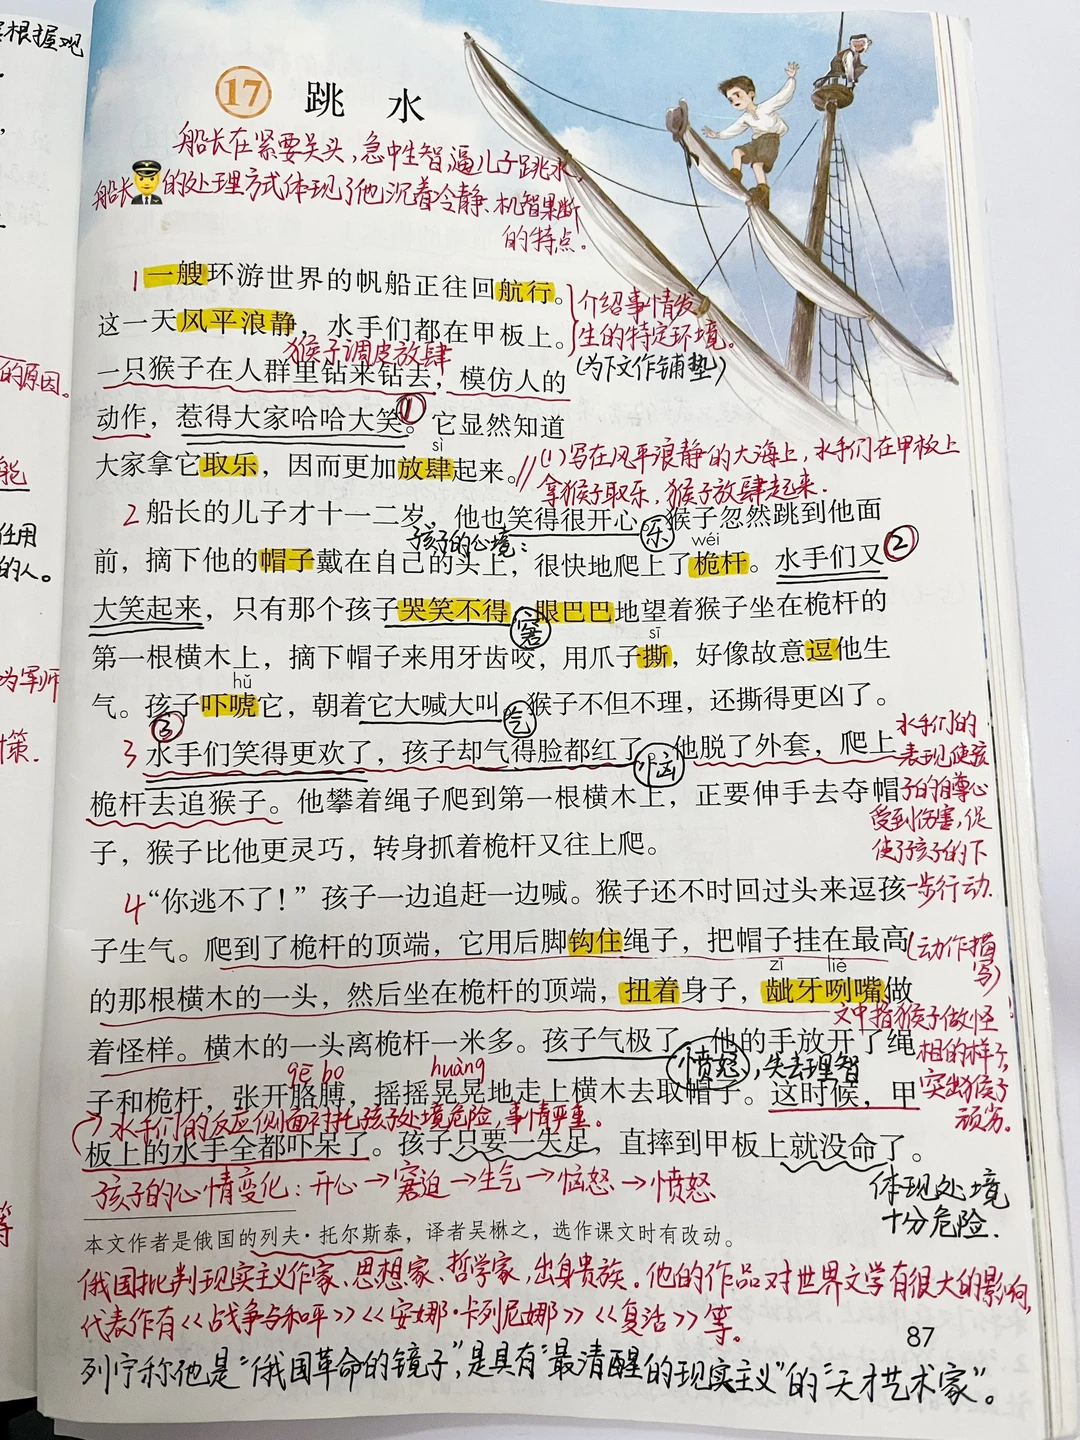 根据握观
的原因。
能
任用
的人。
为军师
计策.
等
17 跳 水
船长在紧要关头，急中生智，逼儿子跳水，
船长的处理方式体现了他沉着冷静、机智果断
的特点。
1 一艘环游世界的帆船正往回航行。
介绍事情发
这一天风平浪静，水手们都在甲板上。
生的特定环境。
猴子调皮放肆
(为下文作铺垫)
一只猴子在人群里钻来钻去，模仿人的
动作，惹得大家哈哈大笑。①它显然知道
sì
大家拿它取乐，因而更加放肆起来。//
(1)写在风平浪静的大海上，水手们在甲板上
拿猴子取乐，猴子放肆起来.
2 船长的儿子才十一二岁，他也笑得很开心。乐 猴子忽然跳到他面
孩子的心境：
wéi
前，摘下他的帽子戴在自己的头上，很快地爬上了桅杆。水手们又②
大笑起来，只有那个孩子哭笑不得，窘 眼巴巴地望着猴子坐在桅杆的
sī
第一根横木上，摘下帽子来用牙齿咬，用爪子撕，好像故意逗他生
hǔ
气。孩子吓唬它，朝着它大喊大叫。气 猴子不但不理，还撕得更凶了。
③
3 水手们笑得更欢了，孩子却气得脸都红了。恼 他脱了外套，爬上
桅杆去追猴子。他攀着绳子爬到第一根横木上，正要伸手去夺帽
子，猴子比他更灵巧，转身抓着桅杆又往上爬。
水手们的
表现使孩
子的自尊心
受到伤害，促
使了孩子的下
一步行动.
4 “你逃不了！”孩子一边追赶一边喊。猴子还不时回过头来逗孩
子生气。爬到了桅杆的顶端，它用后脚钩住绳子，把帽子挂在最高
(动作描
写)
zī liě
的那根横木的一头，然后坐在桅杆的顶端，扭着身子，龇牙咧嘴做
文中指猴子做怪
相的样子，
突出猴子
顽劣。
着怪样。横木的一头离桅杆一米多。孩子气极了，他的手放开了绳
gē bo huàng
愤怒，失去理智
子和桅杆，张开胳膊，摇摇晃晃地走上横木去取帽子。这时候，甲
水手们的反应侧面衬托孩子处境危险，事情严重。
板上的水手全都吓呆了。孩子只要一失足，直摔到甲板上就没命了。
孩子的心情变化：开心→窘迫→生气→恼怒→愤怒
体现处境
十分危险.
本文作者是俄国的列夫·托尔斯泰，译者吴楙之，选作课文时有改动。
俄国批判现实主义作家、思想家、哲学家，出身贵族。他的作品对世界文学有很大的影响，
代表作有《战争与和平》《安娜·卡列尼娜》《复活》等。
87
列宁称他是“俄国革命的镜子”，是具有“最清醒的现实主义”的“天才艺术家”。